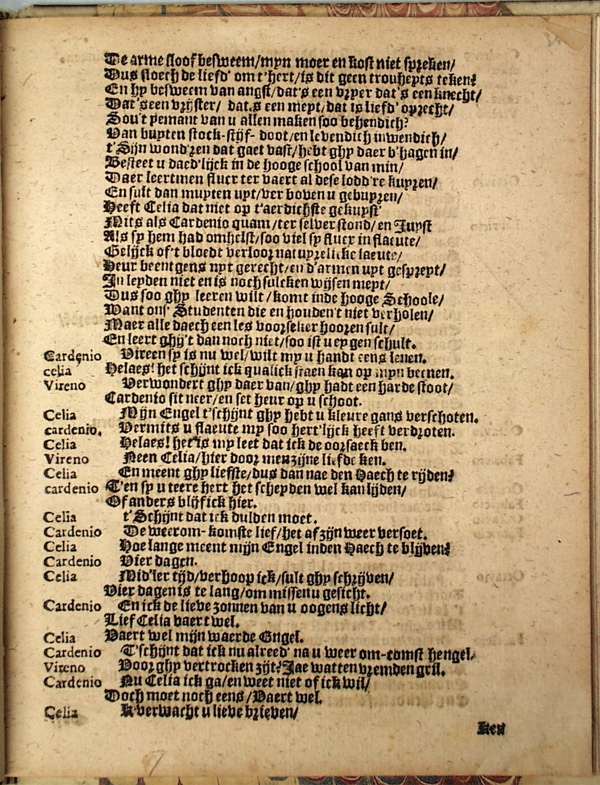 De arme sloof besweem/myn moer en kost niet spreken/
Dus sloech de liefd' om t'hert/is dit geen trouheyts teken?
En hy besweem van angst/dat's een vryer dat's een knecht/
Dat's een vryster/ dat.s een meyt/dat is liefd' oprecht/
Sou't yemant van u allen maken soo behendich?
Van buyten stock-stijf-doot/en levendich inwendich/
t'Sijn wond'ren dat gaet vast/hebt ghy daer b'hagen in/
Besteet u daed'lijck in de hooge school van min/
Daer leertmen flucx ter vaert al dese lodd're kuyren/
En sult dan muyten uyt/ver boven u gebuyren/
Heeft Celia dat niet op t'aerdichste gekuyst
Mits als Cardenio quam/ter selver stond/en Juyst
Als sy hem had omhelst/soo viel sy flucx in flaeute/
Gelijck of't bloedt verloor natuyrelicke laeute/
Heur beentgens uyt gerecht/en d'armen uyt gespreyt/
In leyden niet en is noch sulcken wijsen meyt/
Dus soo ghy leeren wilt/komt inde hooge Schoole/
Want ons' Studenten die en houden't niet verholen/
Maer alle daech een les voorseker hooren sult/
En leert ghy't dan noch niet/soo ist u eygen schult.
Cardenio Vireen sy is nu wel/wilt my u handt eens lenen.
celia Helaes! het schijnt ick qualick staen kan op myn beenen.
Vireno Verwondert ghy daer van/ghy hadt een harde stoot/
Cardenio sit neer/en set heur op u schoot.
Celia Mijn Engel t'schijnt ghy hebt u kleure gans verschoten.
cardenio. Vermits u flaeute my soo hert'lijck heeft verdroten.
Celia Helaes! het is my leet dat ick de oorsaeck ben.
Vireno Neen Celia/hier door men zijne liefde ken.
Celia En meent ghy liefste/dus dan nae den Haech te rijden?
cardenio T'en sy u teere hert het scheyden wel kan lijden/
Of anders blijf ick hier.
Celia t'Schijnt dat ick dulden moet.
Cardenio De weerom-komste lief/het afzijn weer versoet.
Celia Hoe lange meent mijn Engel inden Haech te blijven?
Cardenio Vier dagen.
Celia Mid'ler tijd/verhoop ick/sult ghy schrijven/
Vier dagen is te lang/om missen u gesicht.
Cardenio En ick de lieve zonnen van u oogens licht/
Lief Celia vaert wel.
Celia Vaert wel mijn waerde Engel.
Cardenio T'schijnt dat ick nu alreed' na u weer om-comst hengel/
Vireno Voor ghy vertrocken zijt? Jae wat ten vremden gril.
Cardenio Nu Celia ick ga/en weet niet of ick wil/
Doch moet noch eens/Vaert wel.
Celia K verwacht u lieve brieven/